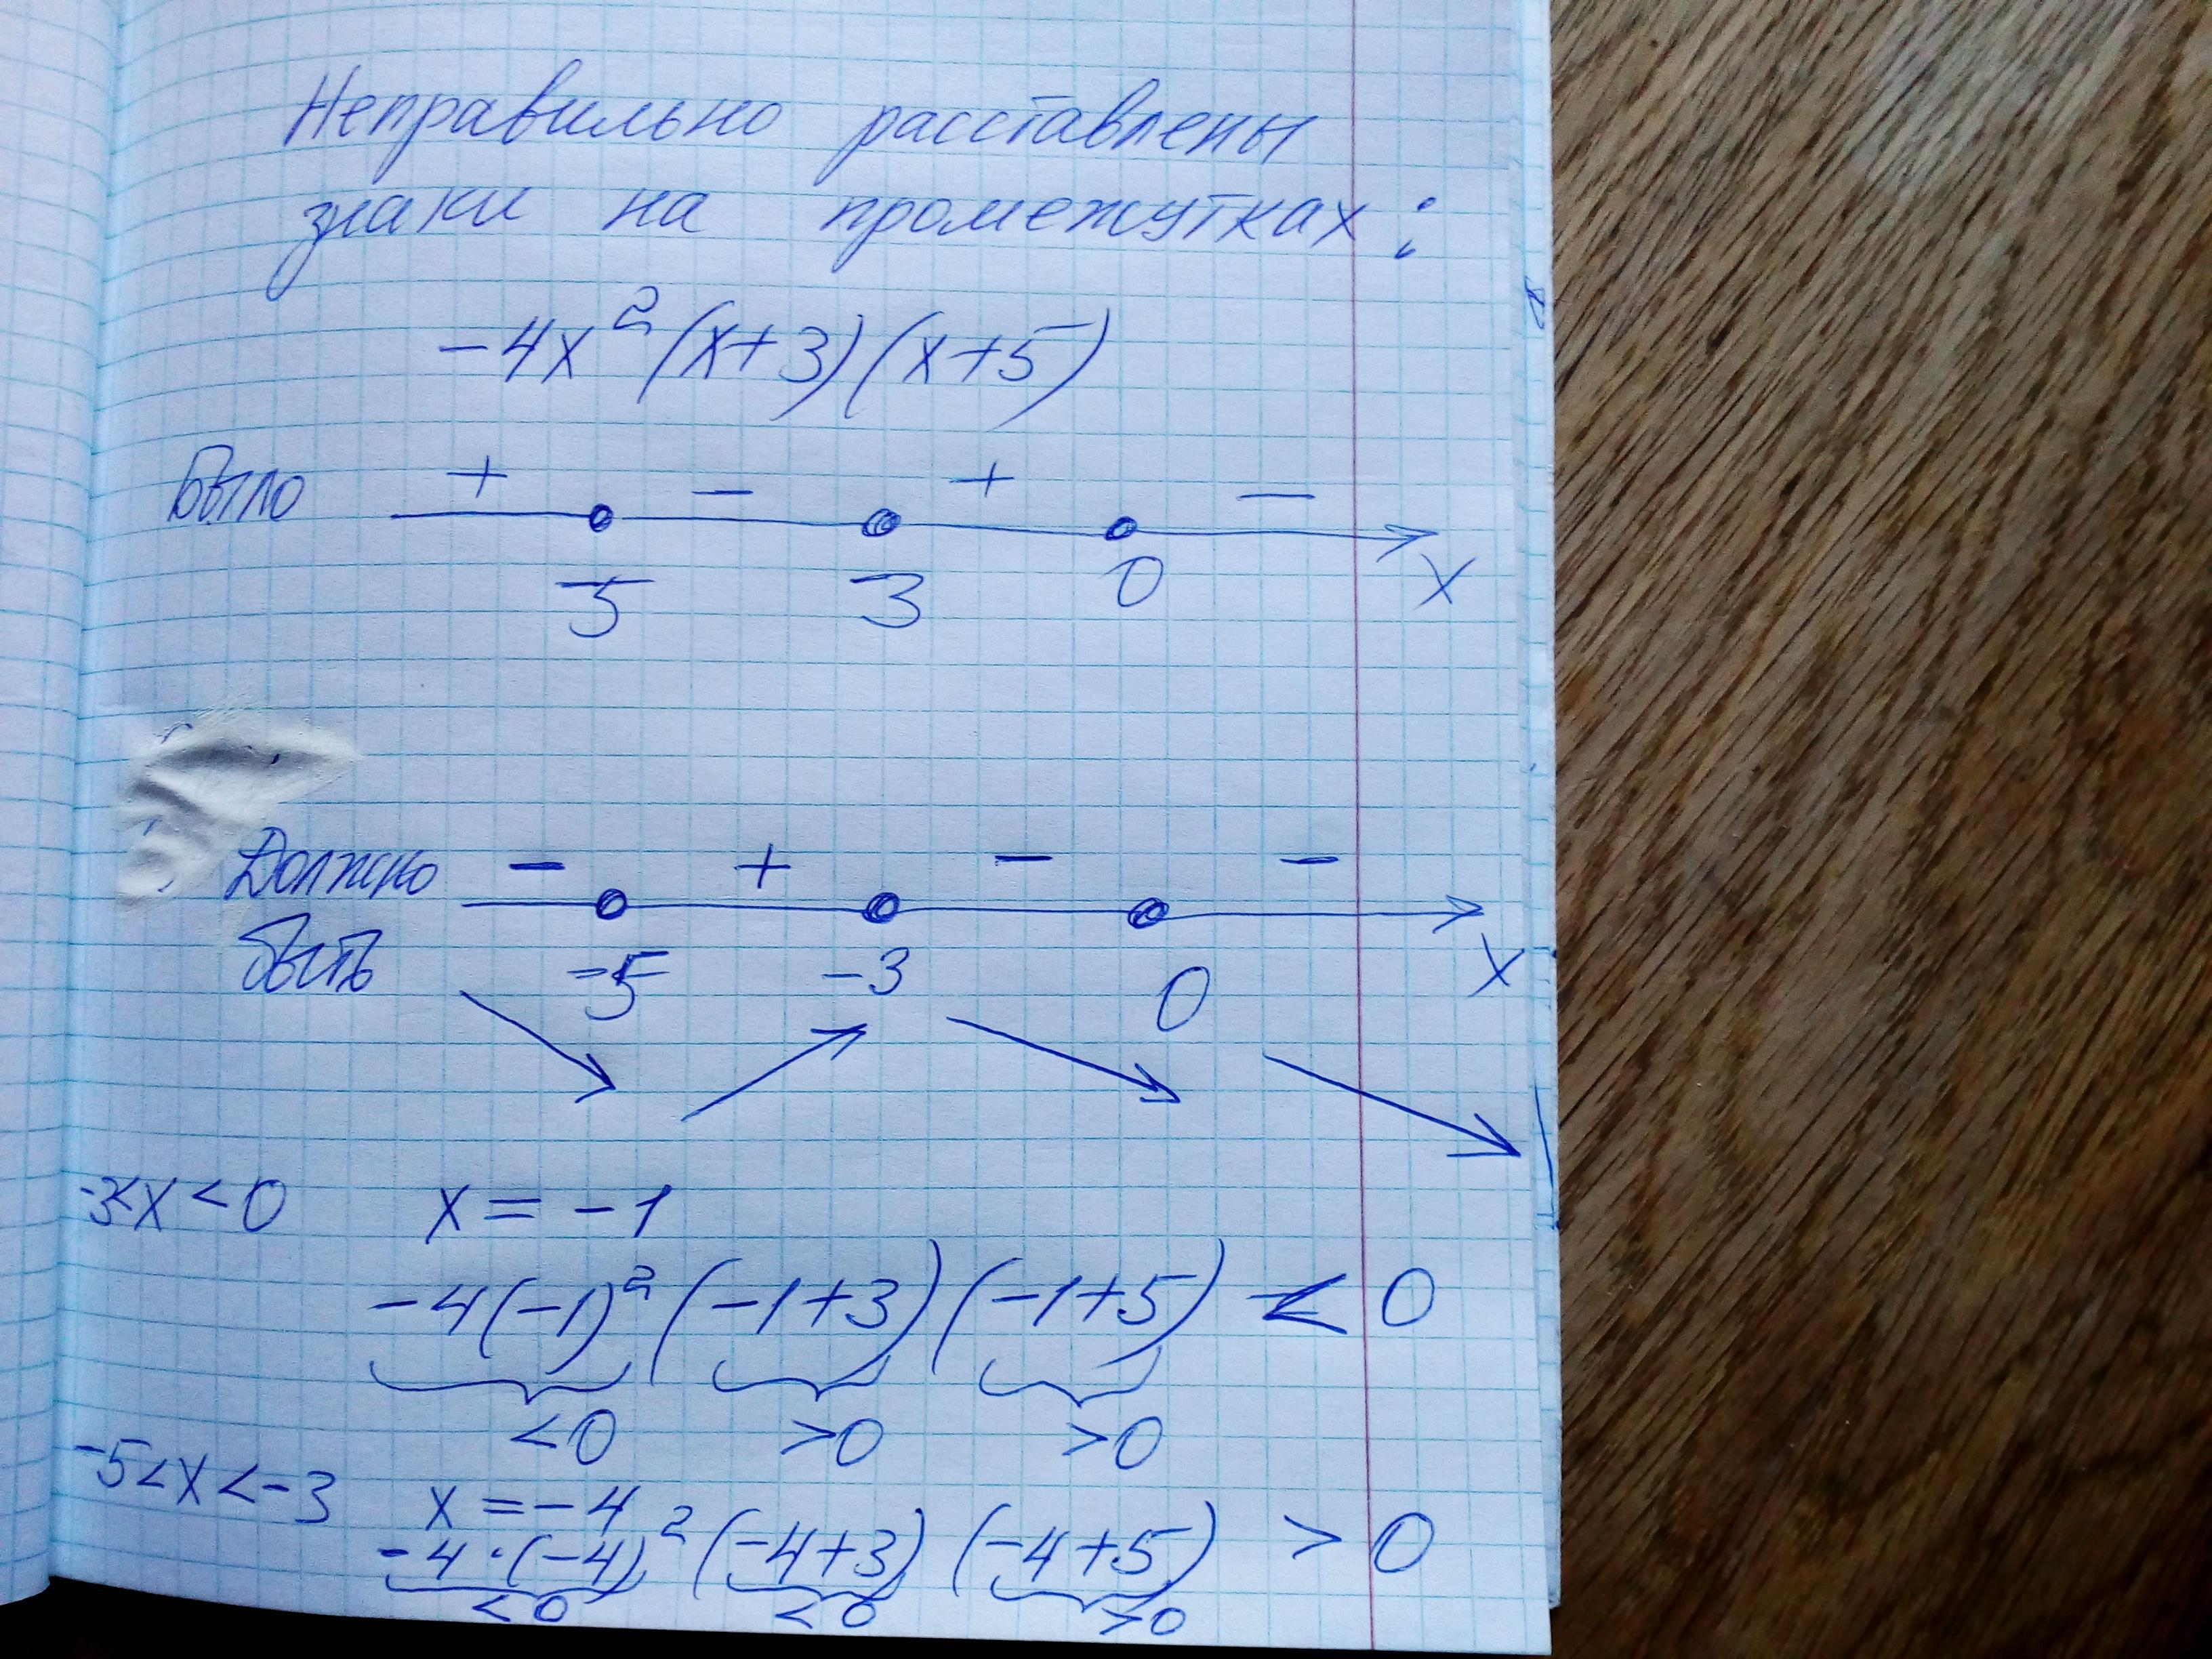 Неправильно расставлены
знаки на промежутках:
-4x²(x+3)(x+5)
Было + - + -
-5 -3 0 x
Должно - + - -
быть -5 -3 0 x
-3<x<0 x = -1
-4(-1)²(-1+3)(-1+5) < 0
<0 >0 >0
-5<x<-3 x = -4
-4·(-4)²(-4+3)(-4+5) > 0
<0 <0 >0